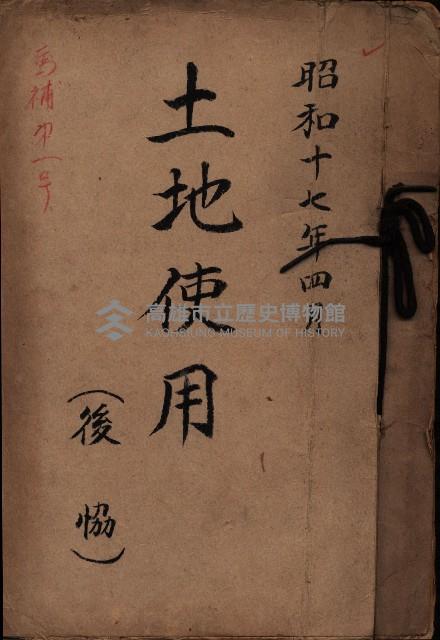 昭和十七年四月
土地使用
（後恊）
補第一号
高雄市立歷史博物館
KAOHSIUNG MUSEUM OF HISTORY